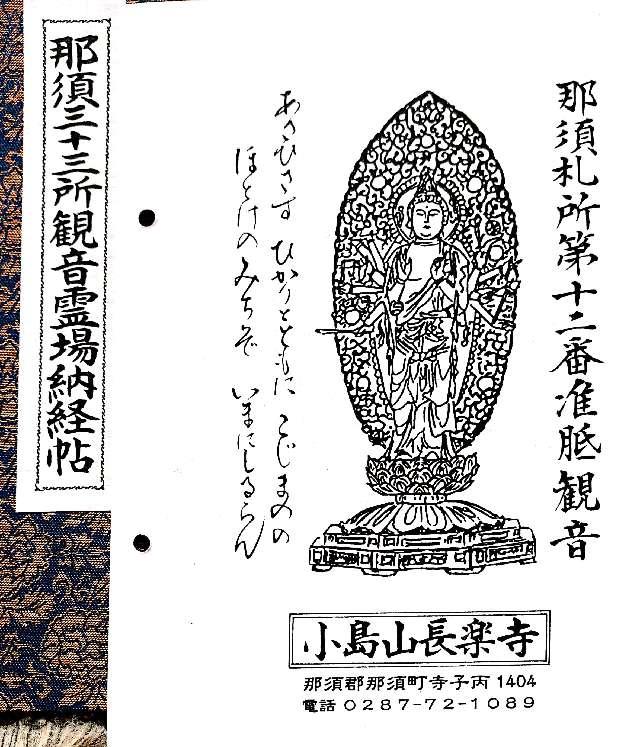 那須札所第十二番准胝観音
あさひさす ひかりとともに こじまの
ほとけのみちを いまにしるらん
小島山長楽寺
那須郡那須町寺子丙1404
電話 0287-72-1089
那須三十三所観音霊場納経帖